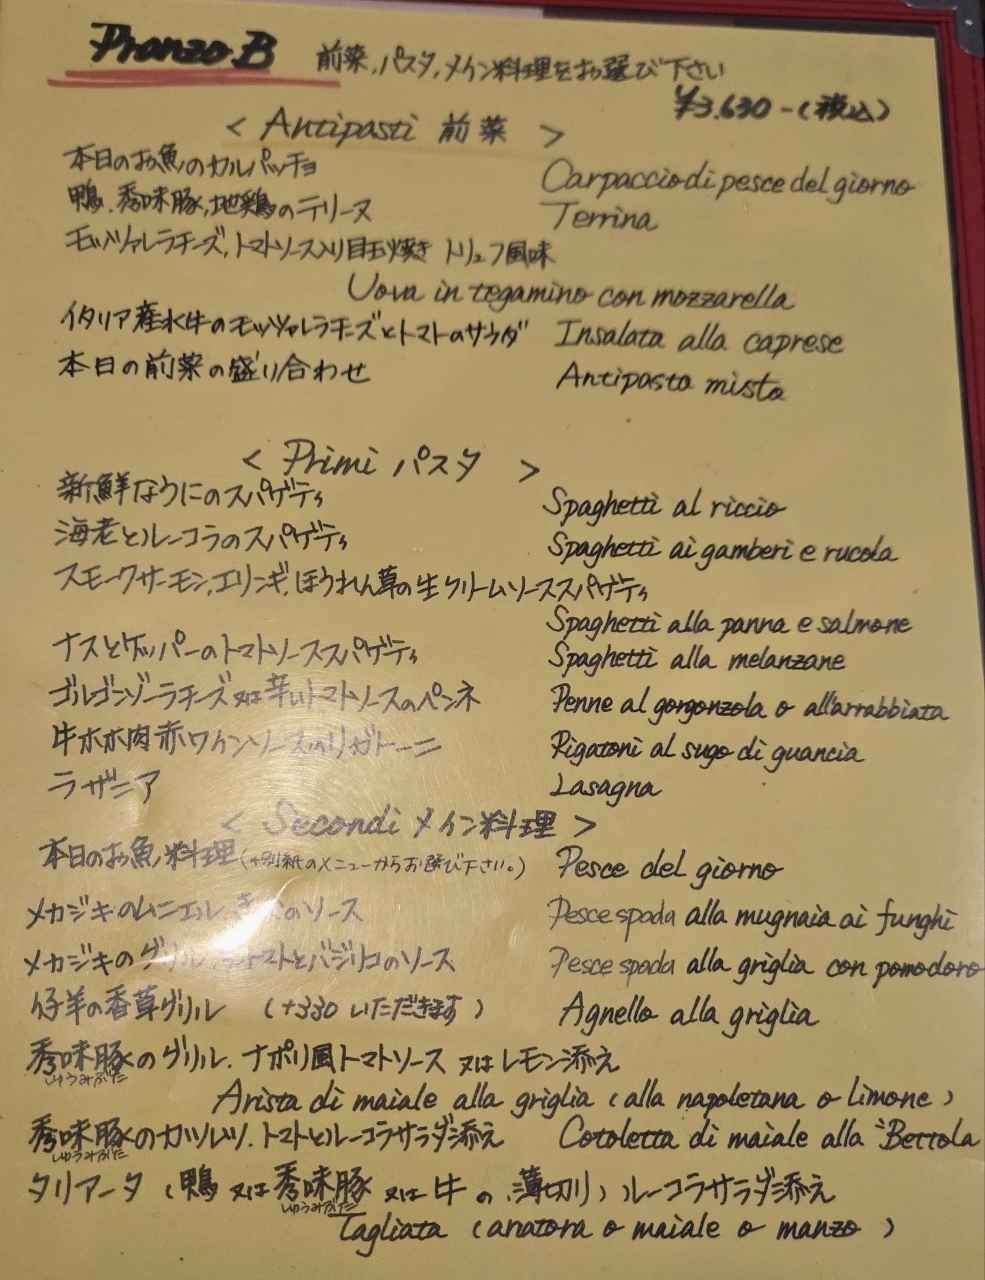 Pranzo B 前菜、パスタ、メイン料理をお選び下さい
¥3.630-(税込)
< Antipasti 前菜 >
本日のお魚のカルパッチョ Carpaccio di pesce del giorno
鴨、秀味豚、地鶏のテリーヌ Terrina
モッツァレラチーズ、トマトソース入り目玉焼き トリュフ風味
Uova in tegamino con mozzarella
イタリア産水牛のモッツァレラチーズとトマトのサラダ Insalata alla caprese
本日の前菜の盛り合わせ Antipasto misto
< Primi パスタ >
新鮮なうにのスパゲティ Spaghetti al riccio
海老とルーコラのスパゲティ Spaghetti ai gamberi e rucola
スモークサーモン、エリンギ、ほうれん草の生クリームソーススパゲティ
Spaghetti alla panna e salmone
ナスとケッパーのトマトソーススパゲティ Spaghetti alla melanzane
ゴルゴンゾーラチーズ又は辛いトマトソースのペンネ Penne al gorgonzola o all'arrabbiata
牛ホホ肉赤ワインソースのリガトーニ Rigatoni al sugo di guancia
ラザニア Lasagna
< Secondi メイン料理 >
本日のお魚料理(別紙のメニューからお選び下さい。) Pesce del giorno
メカジキのムニエル、のソース Pesce spada alla mugnaia ai funghi
メカジキのグリル、トマトとバジリコのソース Pesce spada alla griglia con pomodoro
仔羊の香草グリル (+330 いただきます) Agnello alla griglia
秀味豚のグリル、ナポリ風トマトソース 又はレモン添え
しゅうみぶた
Arista di maiale alla griglia (alla napoletana o limone)
秀味豚のカツレツ、トマトとルーコラサラダ添え Cotoletta di maiale alla "Bettola
しゅうみぶた
タリアータ (鴨 又は 秀味豚 又は 牛 の 薄切り) ルーコラサラダ添え
しゅうみぶた
Tagliata (anatora o maiale o manzo)